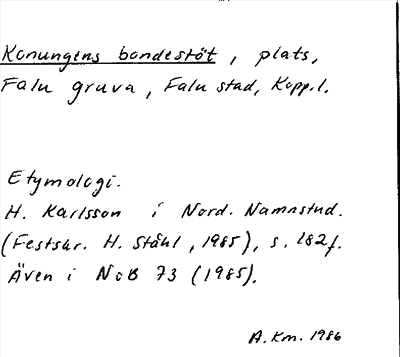 Konungens bondestöt, plats,
Falu gruva, Falu stad, Kopp.l.
Etymologi.
H. Karlsson i Nord. Namnstud.
(Festskr. H. Ståhl, 1985), s. 182f.
Även i NoB 73 (1985).
A.Km. 1986